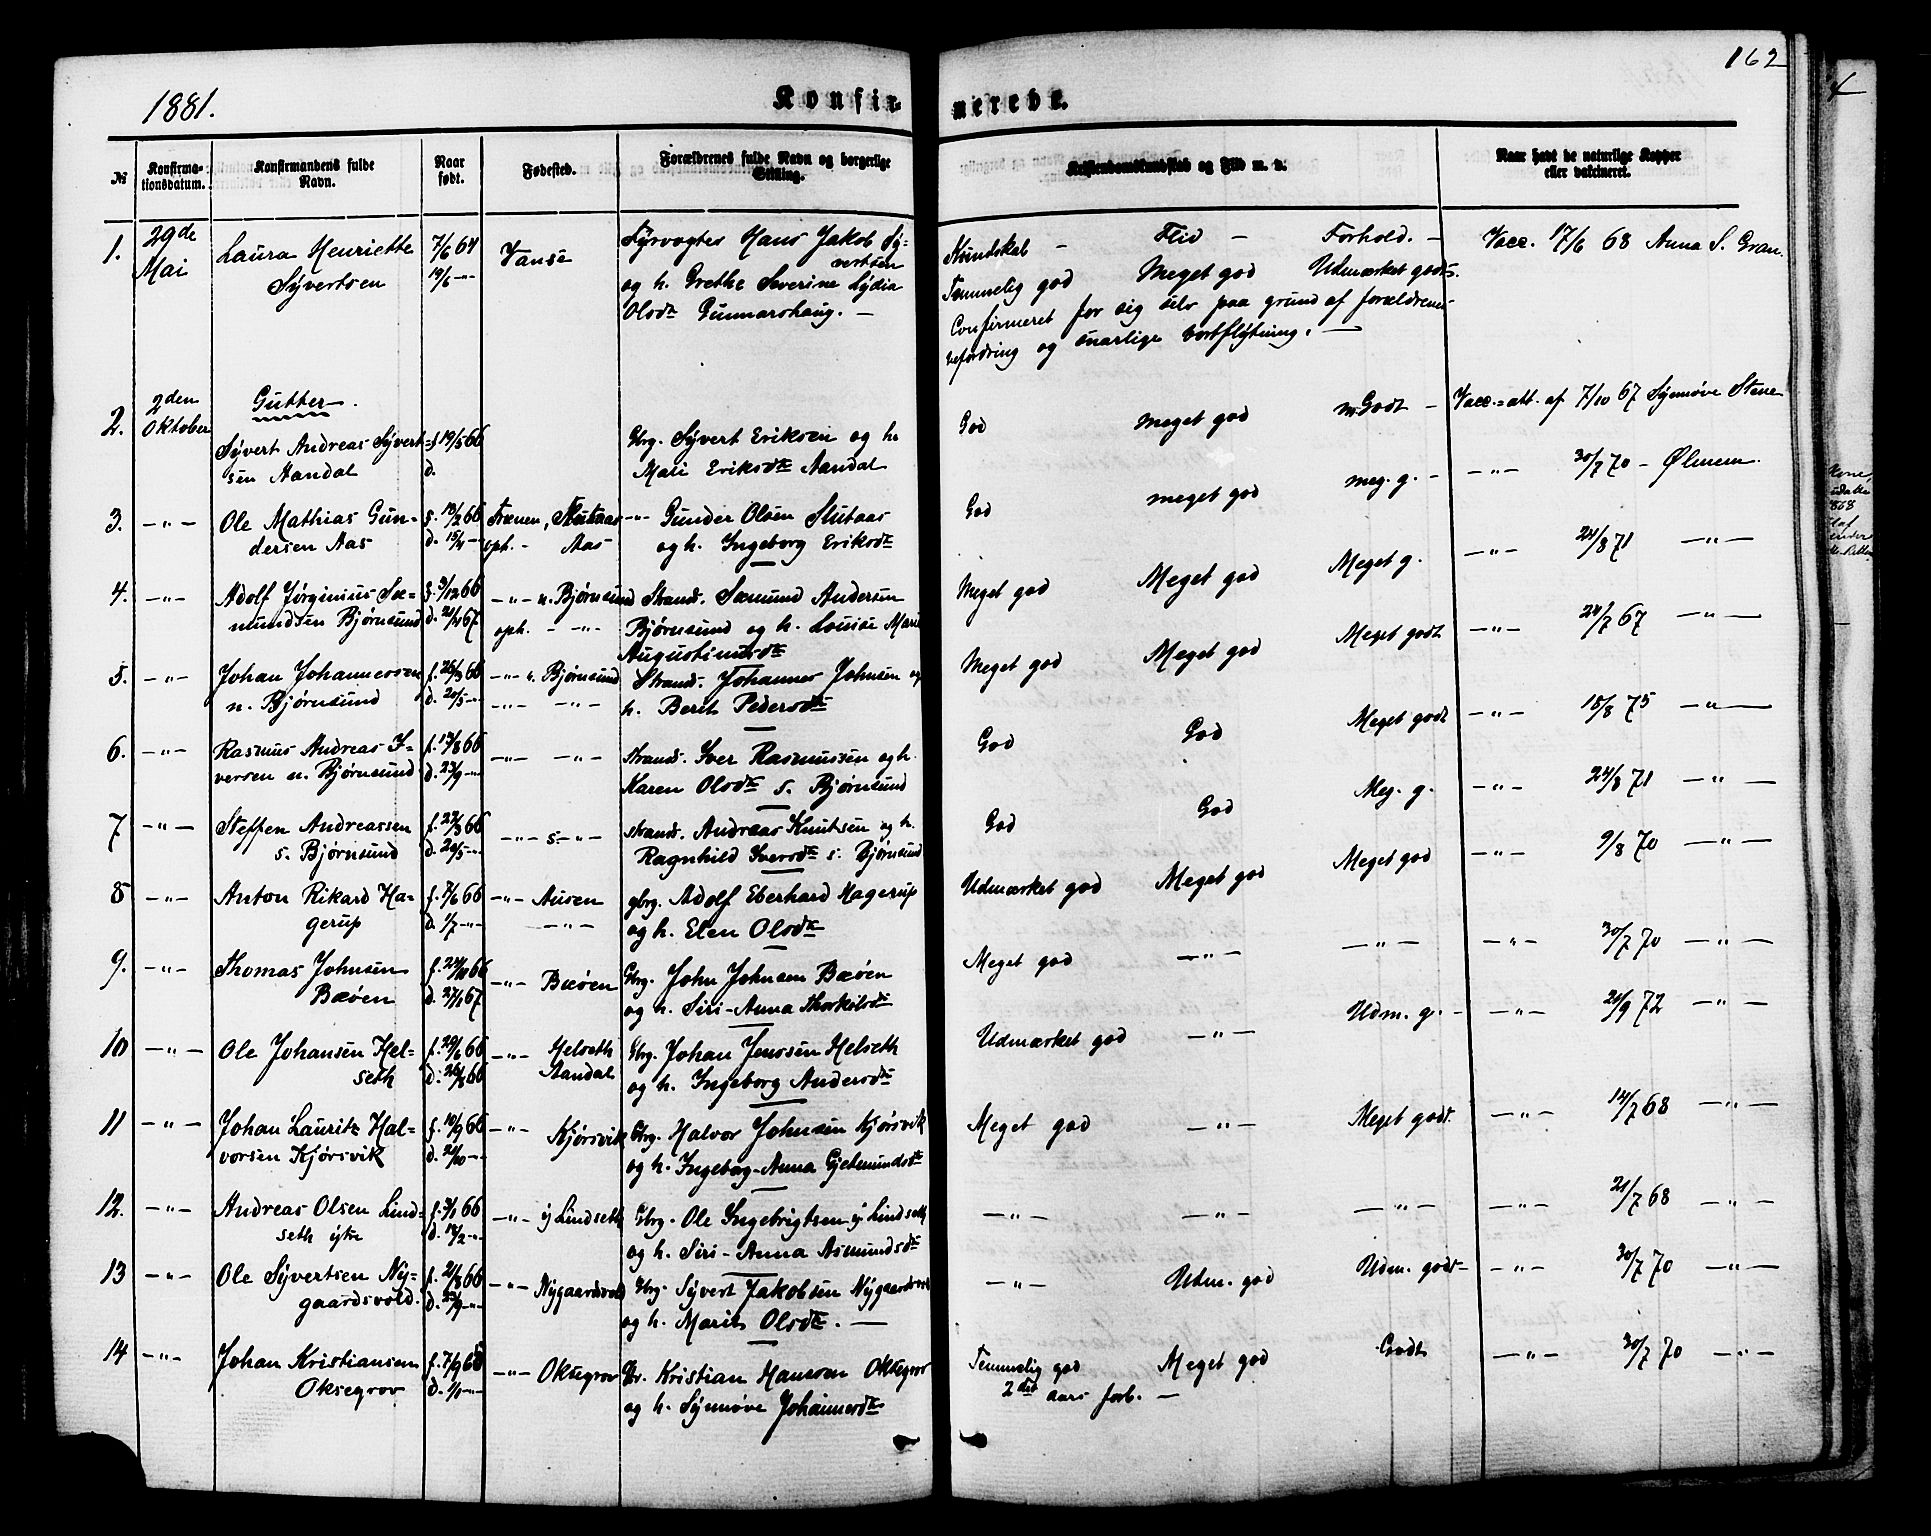 162
1881.
Konfirmerede.
№
Konfirmationsdatum.
Konfirmandens fulde Navn.
Naar født.
Fødested.
Forældrenes fulde Navn og borgerlige Stilling.
Kristendomskundskab og Flid m. v.
Naar havt de naturlige Kopper eller vakcineret.
1. 29de Mai
Laura Henriette Syvertsen
7/6 64
19/6 -"-
Vanse
Fyrvogter Hans Jakob Sy-
vertsen
og h. Grethe Severine Lydia
Olsdtr Gunnarshaug. —
Kundskab — Flid — Forhold. —
Temmelig god Meget god Udmærket godt.
Confirmeret for sig selv paa grund af forældrenes
befordring og snarlige bortflytning. —
Vacc. 17/6 68 Anna S. Gran.
2. 2den Oktober
Gutter.
Syvert Andreas Syvert-
sen Aandal
f. 19/5 66
d.
Gbrg. Syvert Eriksen og h.
Mari Eriksdtr Aandal
God meget god m. Godt —
Vacc.=att. af 7/10 67 Synnøve Stene
3. -"- Ole Mathias Gun-
dersen Aas
f. 13/2 66
d. 15/4 -"-
Frænen, Slutaas
oph. - Aas
-"- Gunder Olsen Slutaas
og h. Ingeborg Eriksdtr
God meget god meg. g. -
-"- 30/7 70 - Ølmem.
4. -"- Adolf Jørginius Sæ-
mundsen Bjørnsund
f. 3/12 66
d. 21/4 67
-"- n. Bjørnsund
oph. - -"-
Strands. Sæmund Andersen
Bjørnsund og h. Louise Marie
Augustinusdtr
Meget god Meget god Meget g.
-"- 24/8 71 -"-
5. -"- Johan Johannessen
n. Bjørnsund
f. 26/3 66
d. 20/5 -"-
-"- n. Bjørnsund
-"- -"-
Strands. Johannes Johnsen og
h. Berit Pedersdtr
Meget god Meget god Meget godt
-"- 24/7 67 -"-
6. -"- Rasmus Andreas I-
versen n. Bjørnsund
f. 13/8 66
d. 23/9 -"-
-"- -"-
strands. Iver Rasmussen og h.
Karen Olsdtr s. Bjørnsund
God God Meget godt
-"- 18/8 75 -"-
7 -"- Steffen Andreassen
s. Bjørnsund
f. 22/3 66
d. 20/5 -"-
-"- s. -"-
strands. Andreas Knutsen og h.
Ragnhild Iversdtr s. Bjørnsund
God God Meg. g.
-"- 24/8 71 -"-
8 -"- Anton Rikard Ha-
gerup
f. 7/6 66
d. 1/7 -"-
-"- Ausen
-"-
gbrg. Adolf Eberhard Hagerup
og h. Elen Olsdtr
Udmærket god Meget god Meget god
-"- 9/8 70 -"-
9. -"- Thomas Johnsen
Bæøen
f. 22/10 66
d. 27/1 67
-"- Bæøen
Gbrg. John Johnsen Bæøen
og h. Siri-Anna Thorkilsdtr
Meget god -"- -"-
-"- 30/7 70 -"-
10 -"- Ole Johansen Hel-
seth
f. 29/6 66
d. 26/8 66
-"- Helseth
Aandal
Gbrg. Johan Jenssen Helseth
og h. Ingeborg Andersdtr
Udmærket god -"- Udm. g. -
-"- 21/9 72 -"-
11 -"- Johan Lauritz Hal-
vorsen Kjørsvik
f. 10/9 66
d. 21/10 -"-
-"- Kjørsvik
Gbrg. Halvor Johnsen Kjørsvik
og h. Ingebog-Anna Gjetmundsdtr
Meget god -"- Meget godt.
-"- 14/7 68 -"-
12. -"- Andreas Olsen Lind-
seth ytre
f. 3/1 66
d. 18/2 -"-
-"- y Lindseth
Gbrg. Ole Ingebrigtsen y. Lindseth
og h. Siri-Anna Asmundsdtr
-"- -"- -"-
-"- 21/7 68 -"-
13 -"- Ole Syvertsen Ny-
gaardsvold.
f. 21/8 66
d. 23/9 -"-
-"- Nygaardsvold
Gbrg. Syvert Jakobsen Nygaardsvold
og h. Marit Olsdtr. —
-"- Udm. god Udm. godt
-"- 30/7 70 -"-
14 -"- Johan Kristiansen
Oksegrov
f. 7/9 65
-"- Oksegrov
Gbr. Kristian Hansen Oksegrov
og h. Synnøve Johannesdtr
Temmelig god Meget god Godt
2det aars forb. —
-"- 30/7 70 -"-